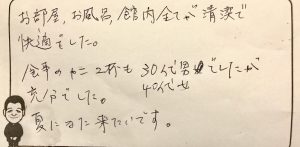 お部屋、お風呂、館内全てが清潔で
快適でした。
食事のカニ2杯も 30代男女でしたが
40代女
充分でした。
夏にまた来たいです。